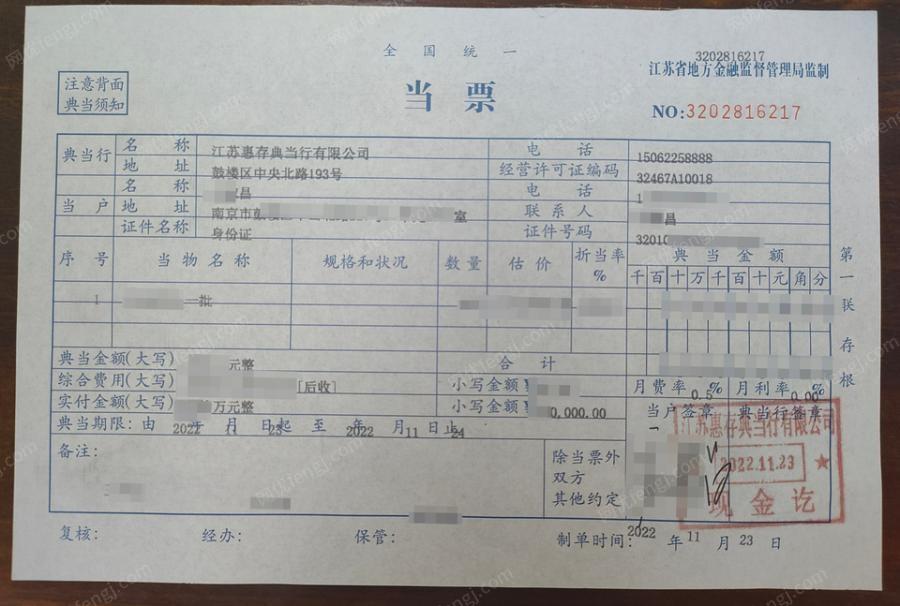 全国统一
3202816217
江苏省地方金融监督管理局监制
注意背面
典当须知
当票
NO:3202816217
典当行 名称 江苏惠存典当行有限公司 电话 15062258888
地址 鼓楼区中央北路193号 经营许可证编码 32467A10018
当户 名称 昌 电话 1
地址 南京市鼓 室 联系人 昌
证件名称 身份证 证件号码 32010
序号 当物名称 规格和状况 数量 估价 折当率% 典当金额
千百十万千百十元角分
1 一批
典当金额(大写) 元整 合计
综合费用(大写) [后收] 小写金额¥ 月费率 0.5 % 月利率 0.00 %
实付金额(大写) 万元整 小写金额¥ 0,000.00 当户签章 典当行签章
典当期限:由 2022 年 11 月 23 日起至 2022 年 月 11 日止 24
备注: 除当票外
双方
其他约定
江苏惠存典当行有限公司
2022.11.23
现金讫
复核: 经办: 保管: 制单时间: 2022 年 11 月 23 日
第一联存根